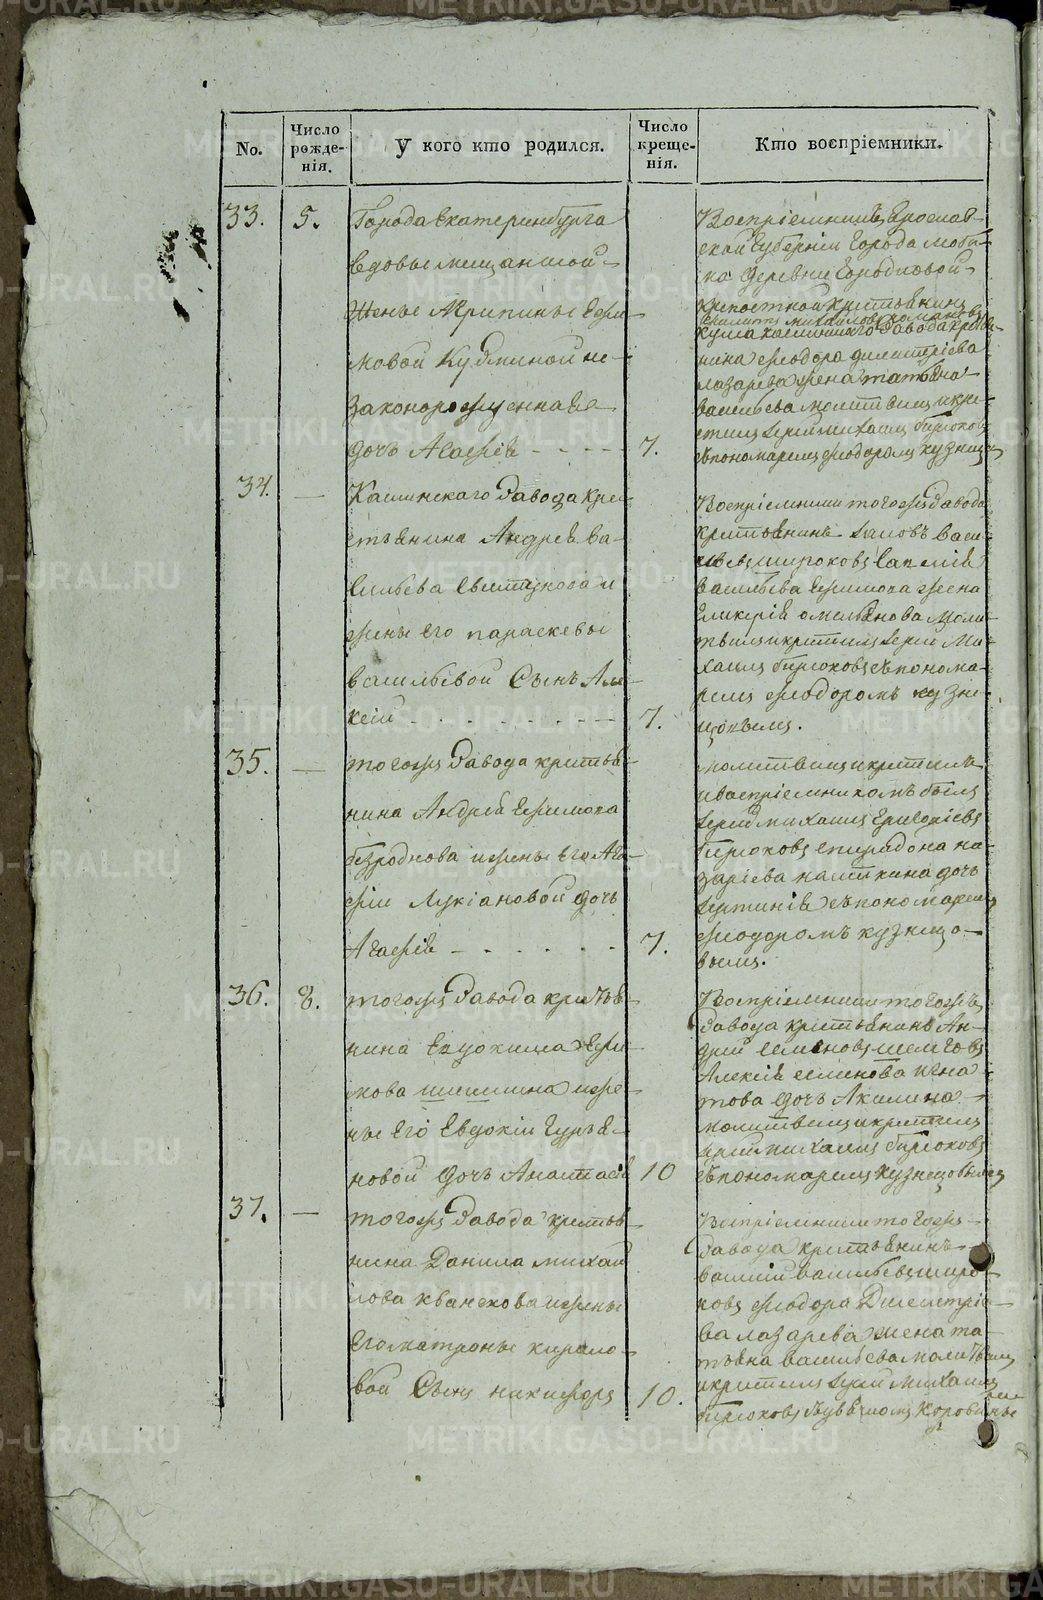 No.
Число рожде-нія.
У кого кто родился.
Число креще-нія.
Кто воспріемники.
33.
5.
Города Екатеринбурга
вдовые мещанской
жены Акрипины Ефи-
мовой не-
законорожденная
дочь Агафія
7.
Воспріемникъ Ярослав-
ской Губерніи города Люби-
ма деревни
крепостной крестьянинъ
Михайловъ
кума Каслинскаго завода крестья-
нина Феодора Димитріева
Лазарева жена Татьяна
Васильева молитвилъ и кре-
стилъ Іерей Михаилъ Бирюковъ
съ пономаремъ Феодоромъ Кузнецо
34.
—
Каслинскаго завода кре-
стьянина Андрея Ва-
сильева и
жены его Параскевы
Васильевой Сынъ Але-
ксій
7.
Воспріемники тогожъ завода
крестьянинъ Васи-
Широковъ
Васильева Ефимова жена
Гликерія Омельянова моли-
твилъ и крестилъ Іерей Ми-
хаилъ Бирюковъ съ понома-
ремъ Феодоромъ Кузне-
цовымъ.
35.
—
тогожъ завода крестья-
нина Андрея Ефимова
безроднова и жены его Ага-
фіи Лукіановой дочь
Агафія
7.
молитвилъ и крестилъ
и воспріемникомъ былъ
Іерей Михаилъ Григоріевъ
Бирюковъ Спиридона На-
заріева дочь
съ пономаремъ
Феодоромъ Кузнецо-
вымъ.
36.
8.
тогожъ завода крестья-
нина Евдокима Ефи-
мова и же-
ны его Евдокіи Гурья-
новой дочь Анастасія
10
Воспріемники тогожъ
завода крестьянинъ Ан-
дрей Семеновъ
Алексія Семенова Игна-
това дочь Акилина
молитвилъ и крестилъ
Іерей Михаилъ Бирюковъ
съ пономаремъ Кузнецовымъ
37.
—
тогожъ завода крестья-
нина Данила Михай
лова и жены
его Матроны Кирило-
вой Сынъ Никифоръ
10.
Воспріемники тогожъ
завода крестьянинъ
Василій Васильевъ Широ-
ковъ Феодора Димитріе-
ва Лазарева жена Та-
тьяна Васильева молитвилъ
и крестилъ Іерей Михаилъ
Бирюковъ
METRIKI.GASO-URAL.RU